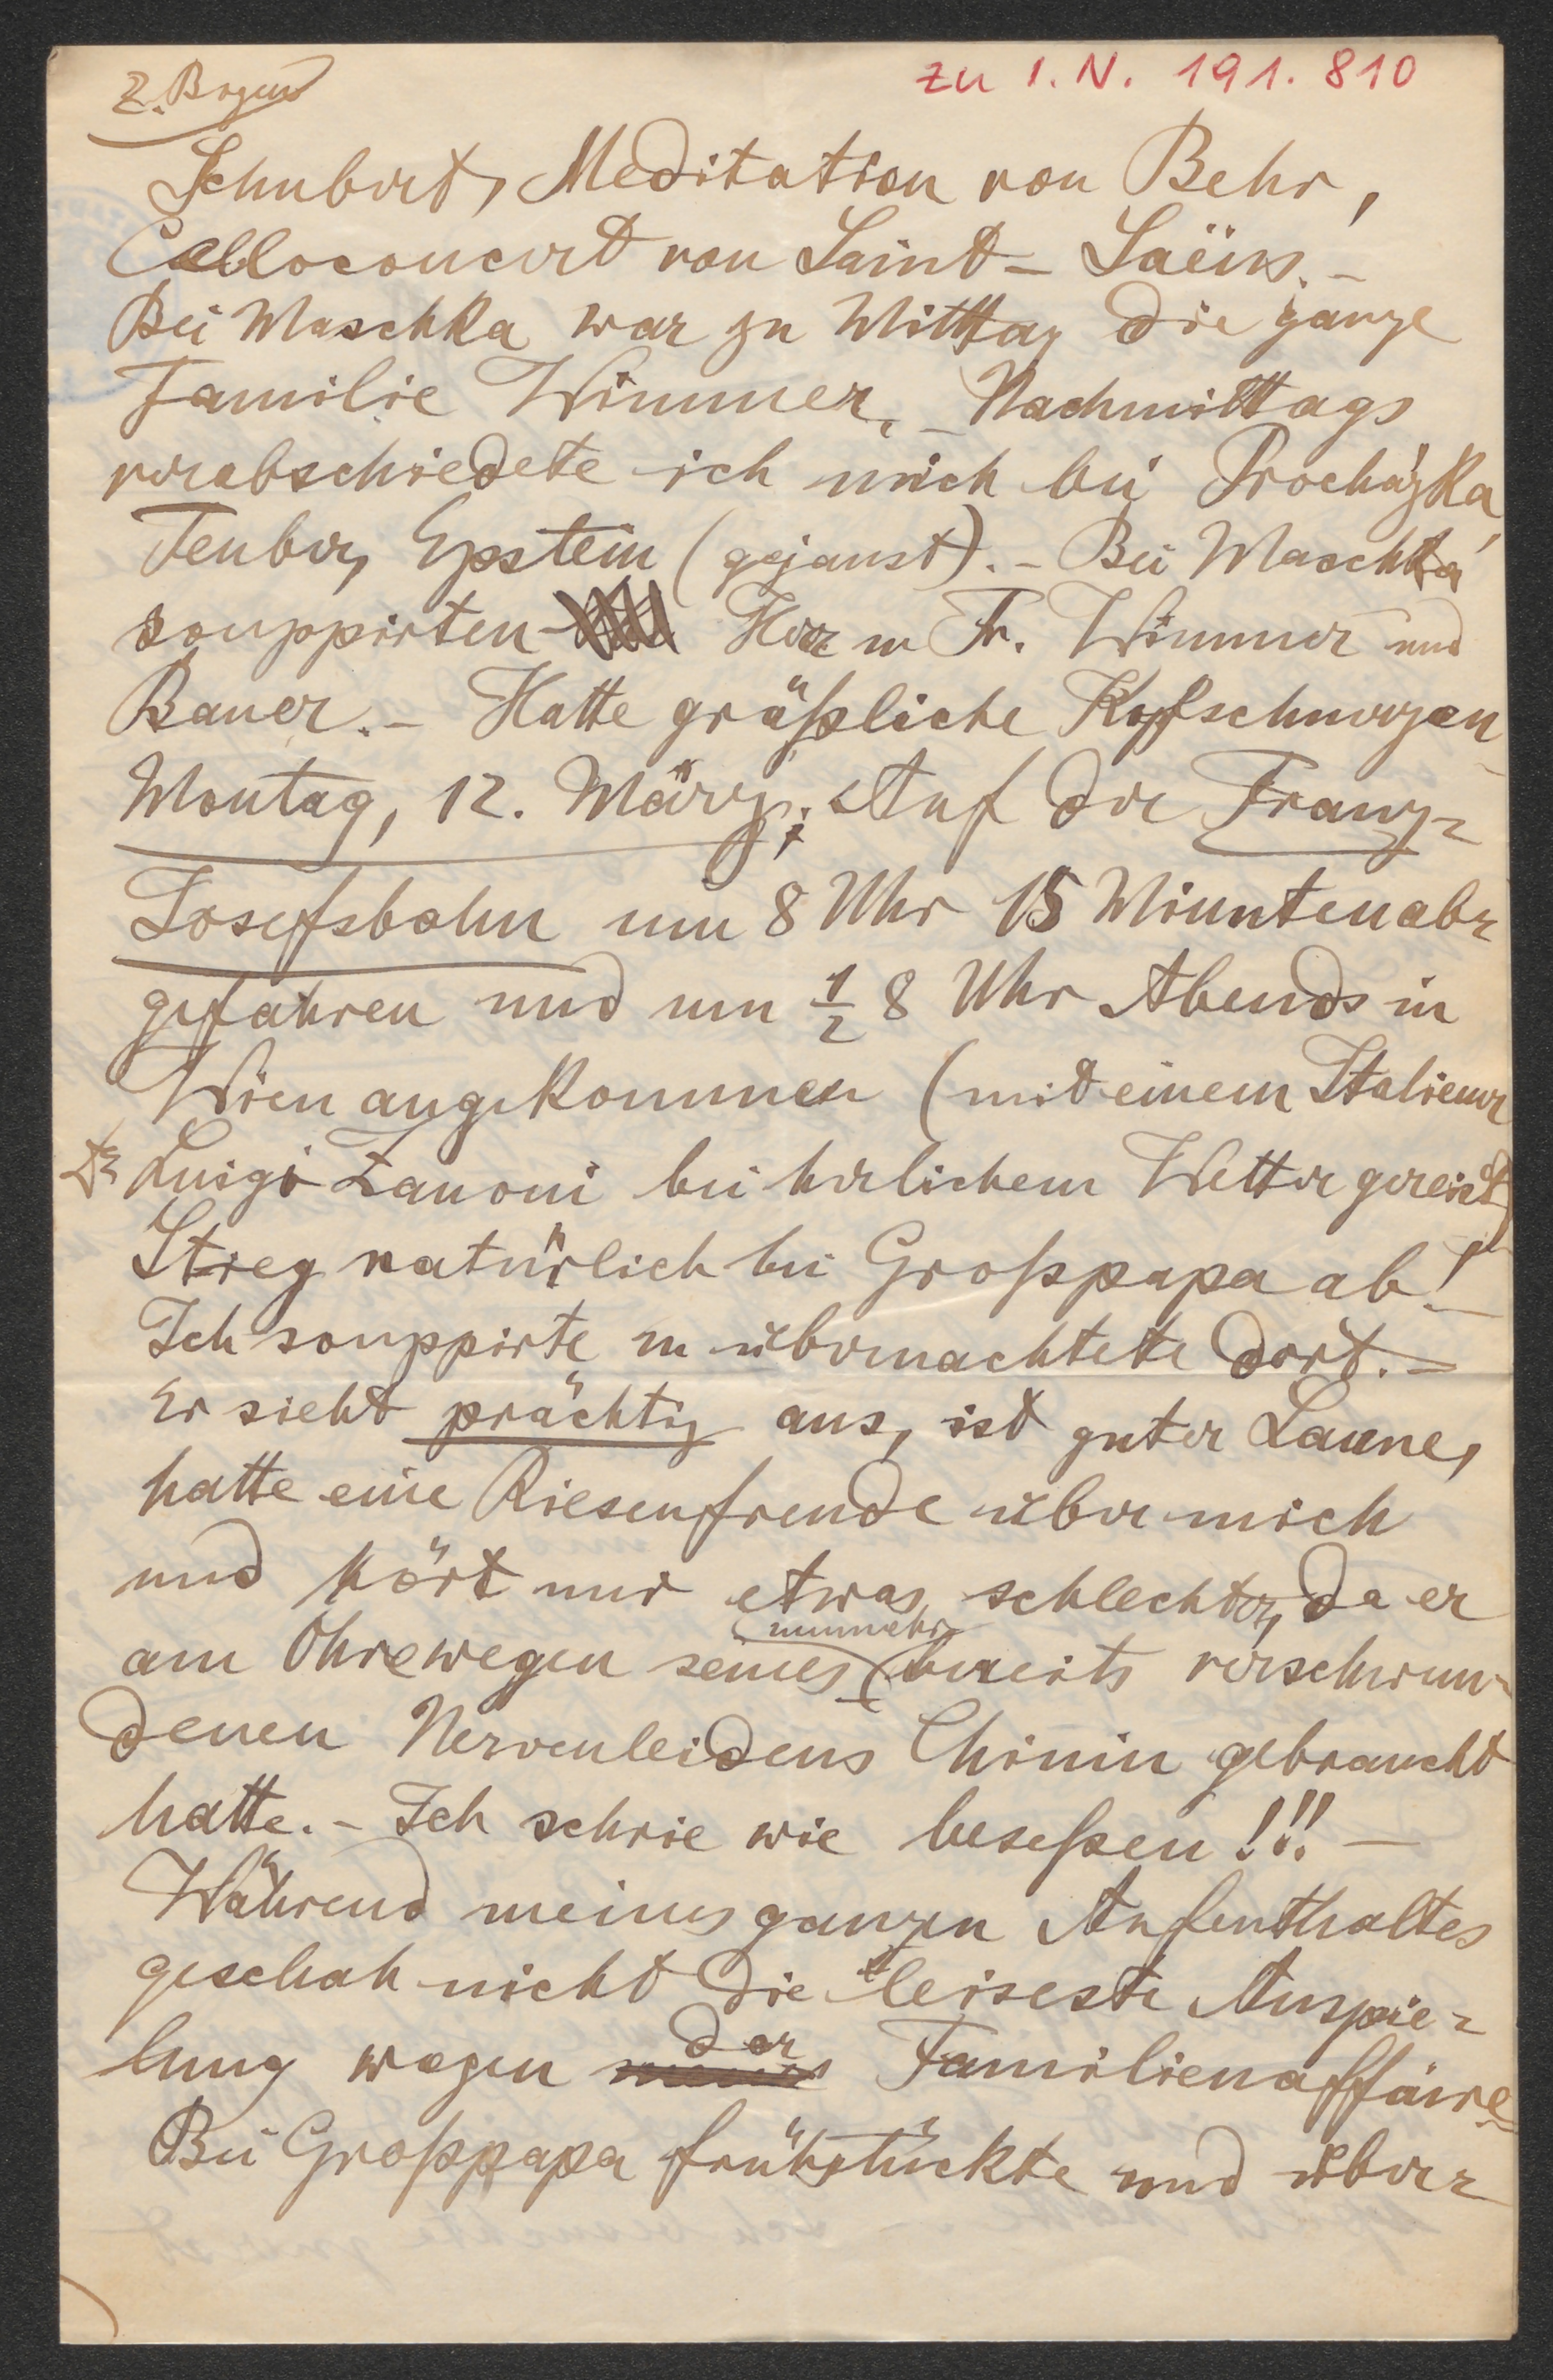 2. Bogen
zu I. N. 191. 810
Schubert, Meditation von Behr,
Celloconcert von Saint-Saëns. –
Bei Maschka war zu Mitttag die ganze
Familie Wimmer. – Nachmitttags
verabschiedete ich mich bei Procházka,
Teuber, Epstein (gejaust). – Bei Maschka
souppirten Herr u Fr. Wimmer und
Bauer. – Hatte gräßliche Kopfschmerzen
Montag, 12. März: Auf der Franz-
Josefsbahn um 8 Uhr 15 Minuten ab-
gefahren und um 1/2 8 Uhr Abends in
Wien angekommen (mit einem Italiener
Dr Luigi Zanoni bei herlichem Wetter gereist)
Stieg natürlich bei Großpapa ab! –
Ich souppirte u übernachtete dort. –
Er sieht prächtig aus, ist guter Laune,
hatte eine Riesenfreude über mich
und hört nur etwas schlechter, da er
nunmehr
am Ohre wegen seines bereits verschwun-
denen Nervenleidens Chinin gebraucht
hatte. – Ich schrie wie beseßen!!! –
Während meines ganzen Aufenthaltes
geschah nicht die leiseste Anspie-
lung wegen der Familienaffaire
Bei Großpapa frühstückte und über-